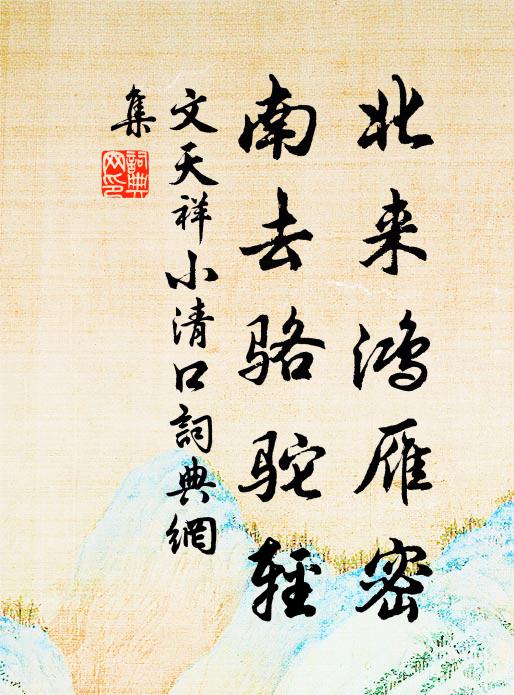 北来鸿雁密
南去骆驼轻
文天祥小清口詞典網
集
詞典
网印